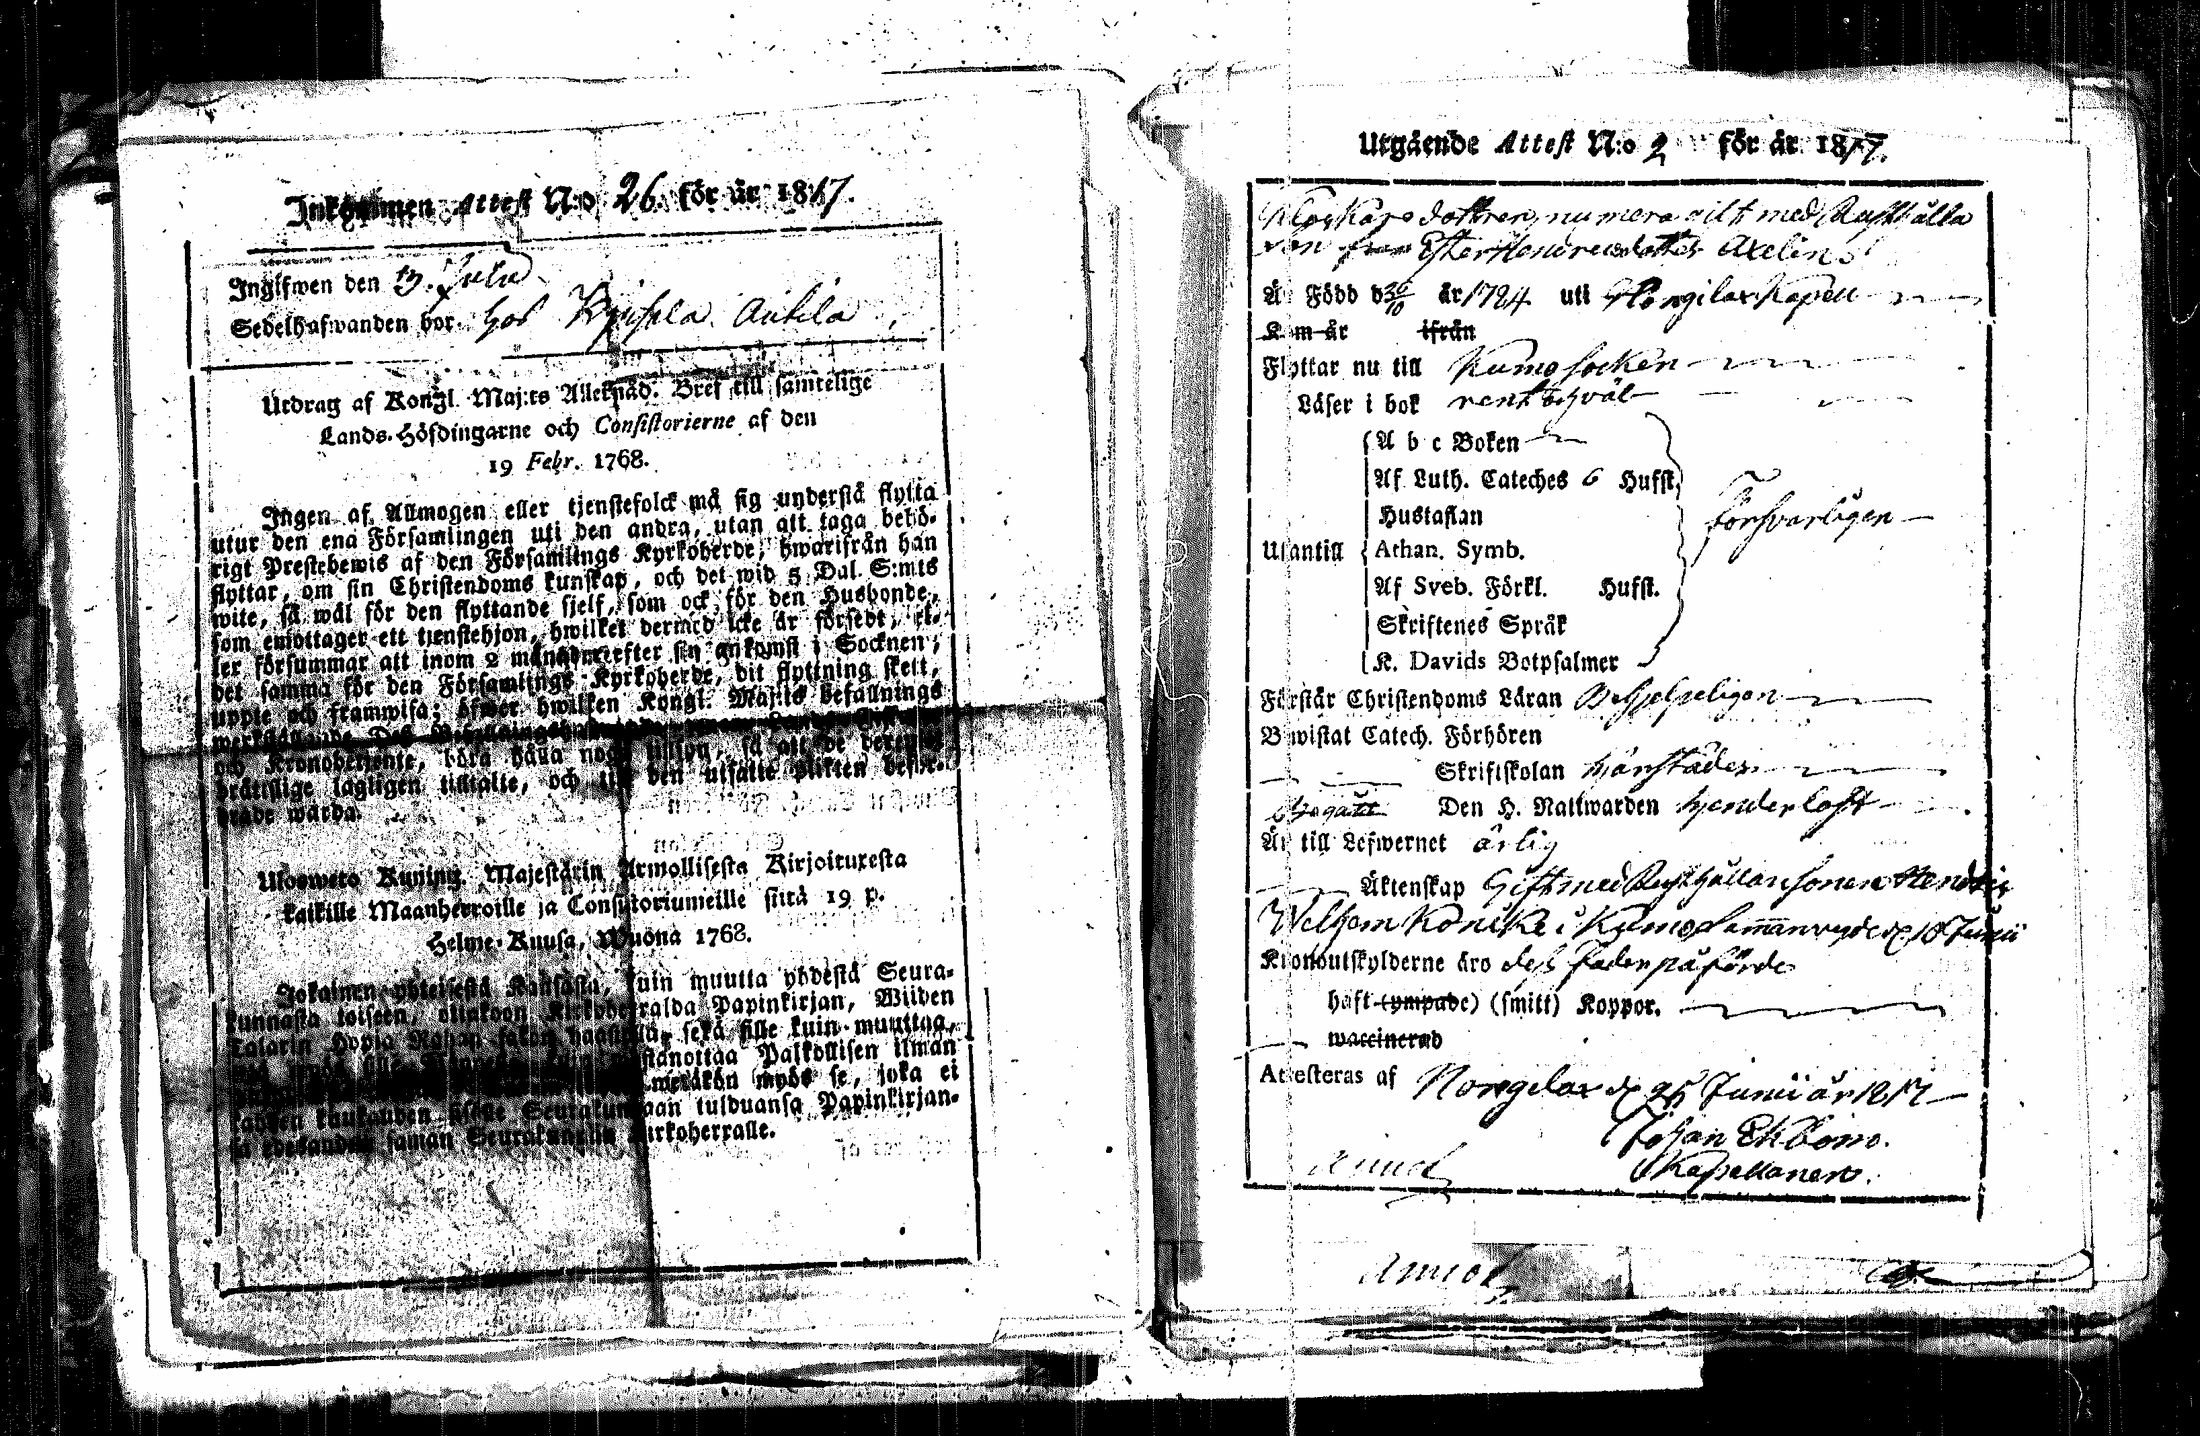 Inkommen Attest N:o 26 för år 1817.
Ingifwen den 13. Julii
Sedelhafwanden bor hos Anttila
Utdrag af Kongl. Maj:ts Allernåd. Bref till samtelige
Lands-Höfdingarne och Consistorierne af den
19 Febr. 1768.
Ingen af Allmogen eller tjenstefolck må sig understå flytta
utur den ena Församlingen uti den andra, utan att taga behö-
rigt Prestebewis af den Församlings Kyrkoherde, hwarifrån han
flyttar, om sin Christendoms kunskap, och det wid 5 Dal. S:mts
wite, så wäl för den flyttande sjelf, som ock för den Husbonde,
som emottager ett tjenstehjon, hwilket dermed icke är försedt, el-
ler försummar att inom 2 månader efter sin ankomst i Socknen,
det samma för den Församlings Kyrkoherde, dit flyttning skett,
uppte och framwisa; öfwer hwilken Kongl. Maj:ts befallnings
werkställande Des
och Kronobetjente, böra hålla noga tillsyn, så att de
brättslige lagligen tilltalte, och till den utsatte plikten beför-
drade warda.
Ulosweto Kuning. Majestätin Armollisesta Kirjoituxesta
kaikille Maanherroille ja Consistoriumeille siitä 19 p.
Helme-Kuusa, Wuonna 1768.
Jokainen yhteisestä Kansasta, kuin muutta yhdestä Seura-
kunnasta toiseen, ottakoon Kirkoherralda Papinkirjan, Wiiden
Talarin Hopia Rahan sakon haastolla, sekä sille kuin muuttaa,
Palkollisen ilman
myös se, joka ei
kahden kuukauden sisälle Seurakundaan tulduansa Papinkirjan-
sa edesanna saman Seurakunnan Kirkoherralle.
Utgående Attest N:o 2 för år 1817.
Klockars dottren, numera gift med Rusthålla
ren Ester Hendricsdotter Axelin
Är Född d 30/10 år 1794 uti Hongilax Kapell
Kom år ifrån
Flyttar nu till Kumo socken
Läser i bok rent och väl
A b c Boken
Af Luth. Cateches 6 Hufst.
Hustaflan
Utantill Athan. Symb.
Försvarligen
Af Sveb. Förkl. Hufst.
Skriftenes Språk
K. Davids Botpsalmer
Förstår Christendoms Läran
Bewistat Catech. Förhören
Skriftskolan
Begått Den H. Nattwarden
Är till Lefwernet ärlig
Äktenskap Gift med Rusthållarsonen Hendric
Welhem i Kumo Sammanvigde d 18 Junii
Kronoutskylderne äro dess fader påförde
haft (ympade) (smitt) Koppor.
waccinerad
Attesteras af Hongilax d 25 Junii år 1817
Johan Ekbom.
Kapellanen.